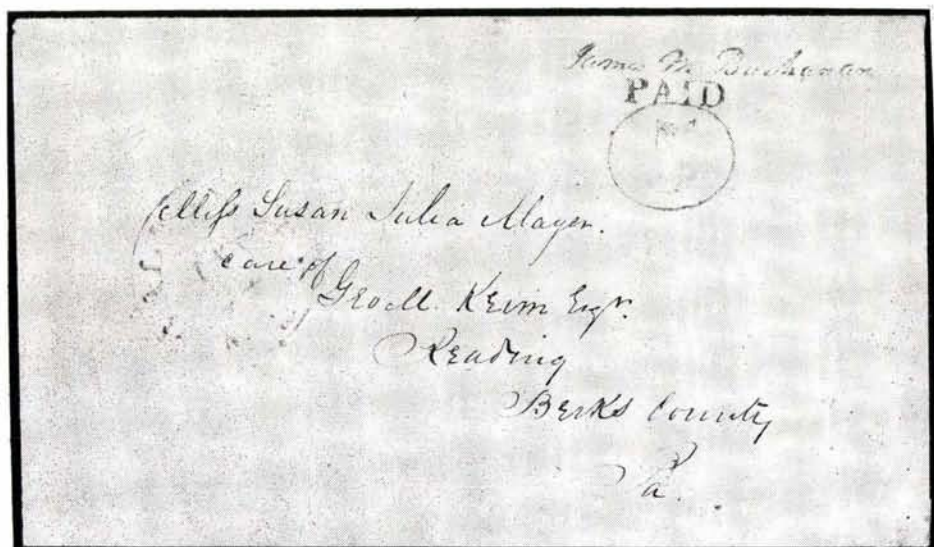 James M. Buchanan
PAID
Miss Susan Julia Mayer.
care of
Geo M. Keim Esqr.
Reading
Berks County
Pa.